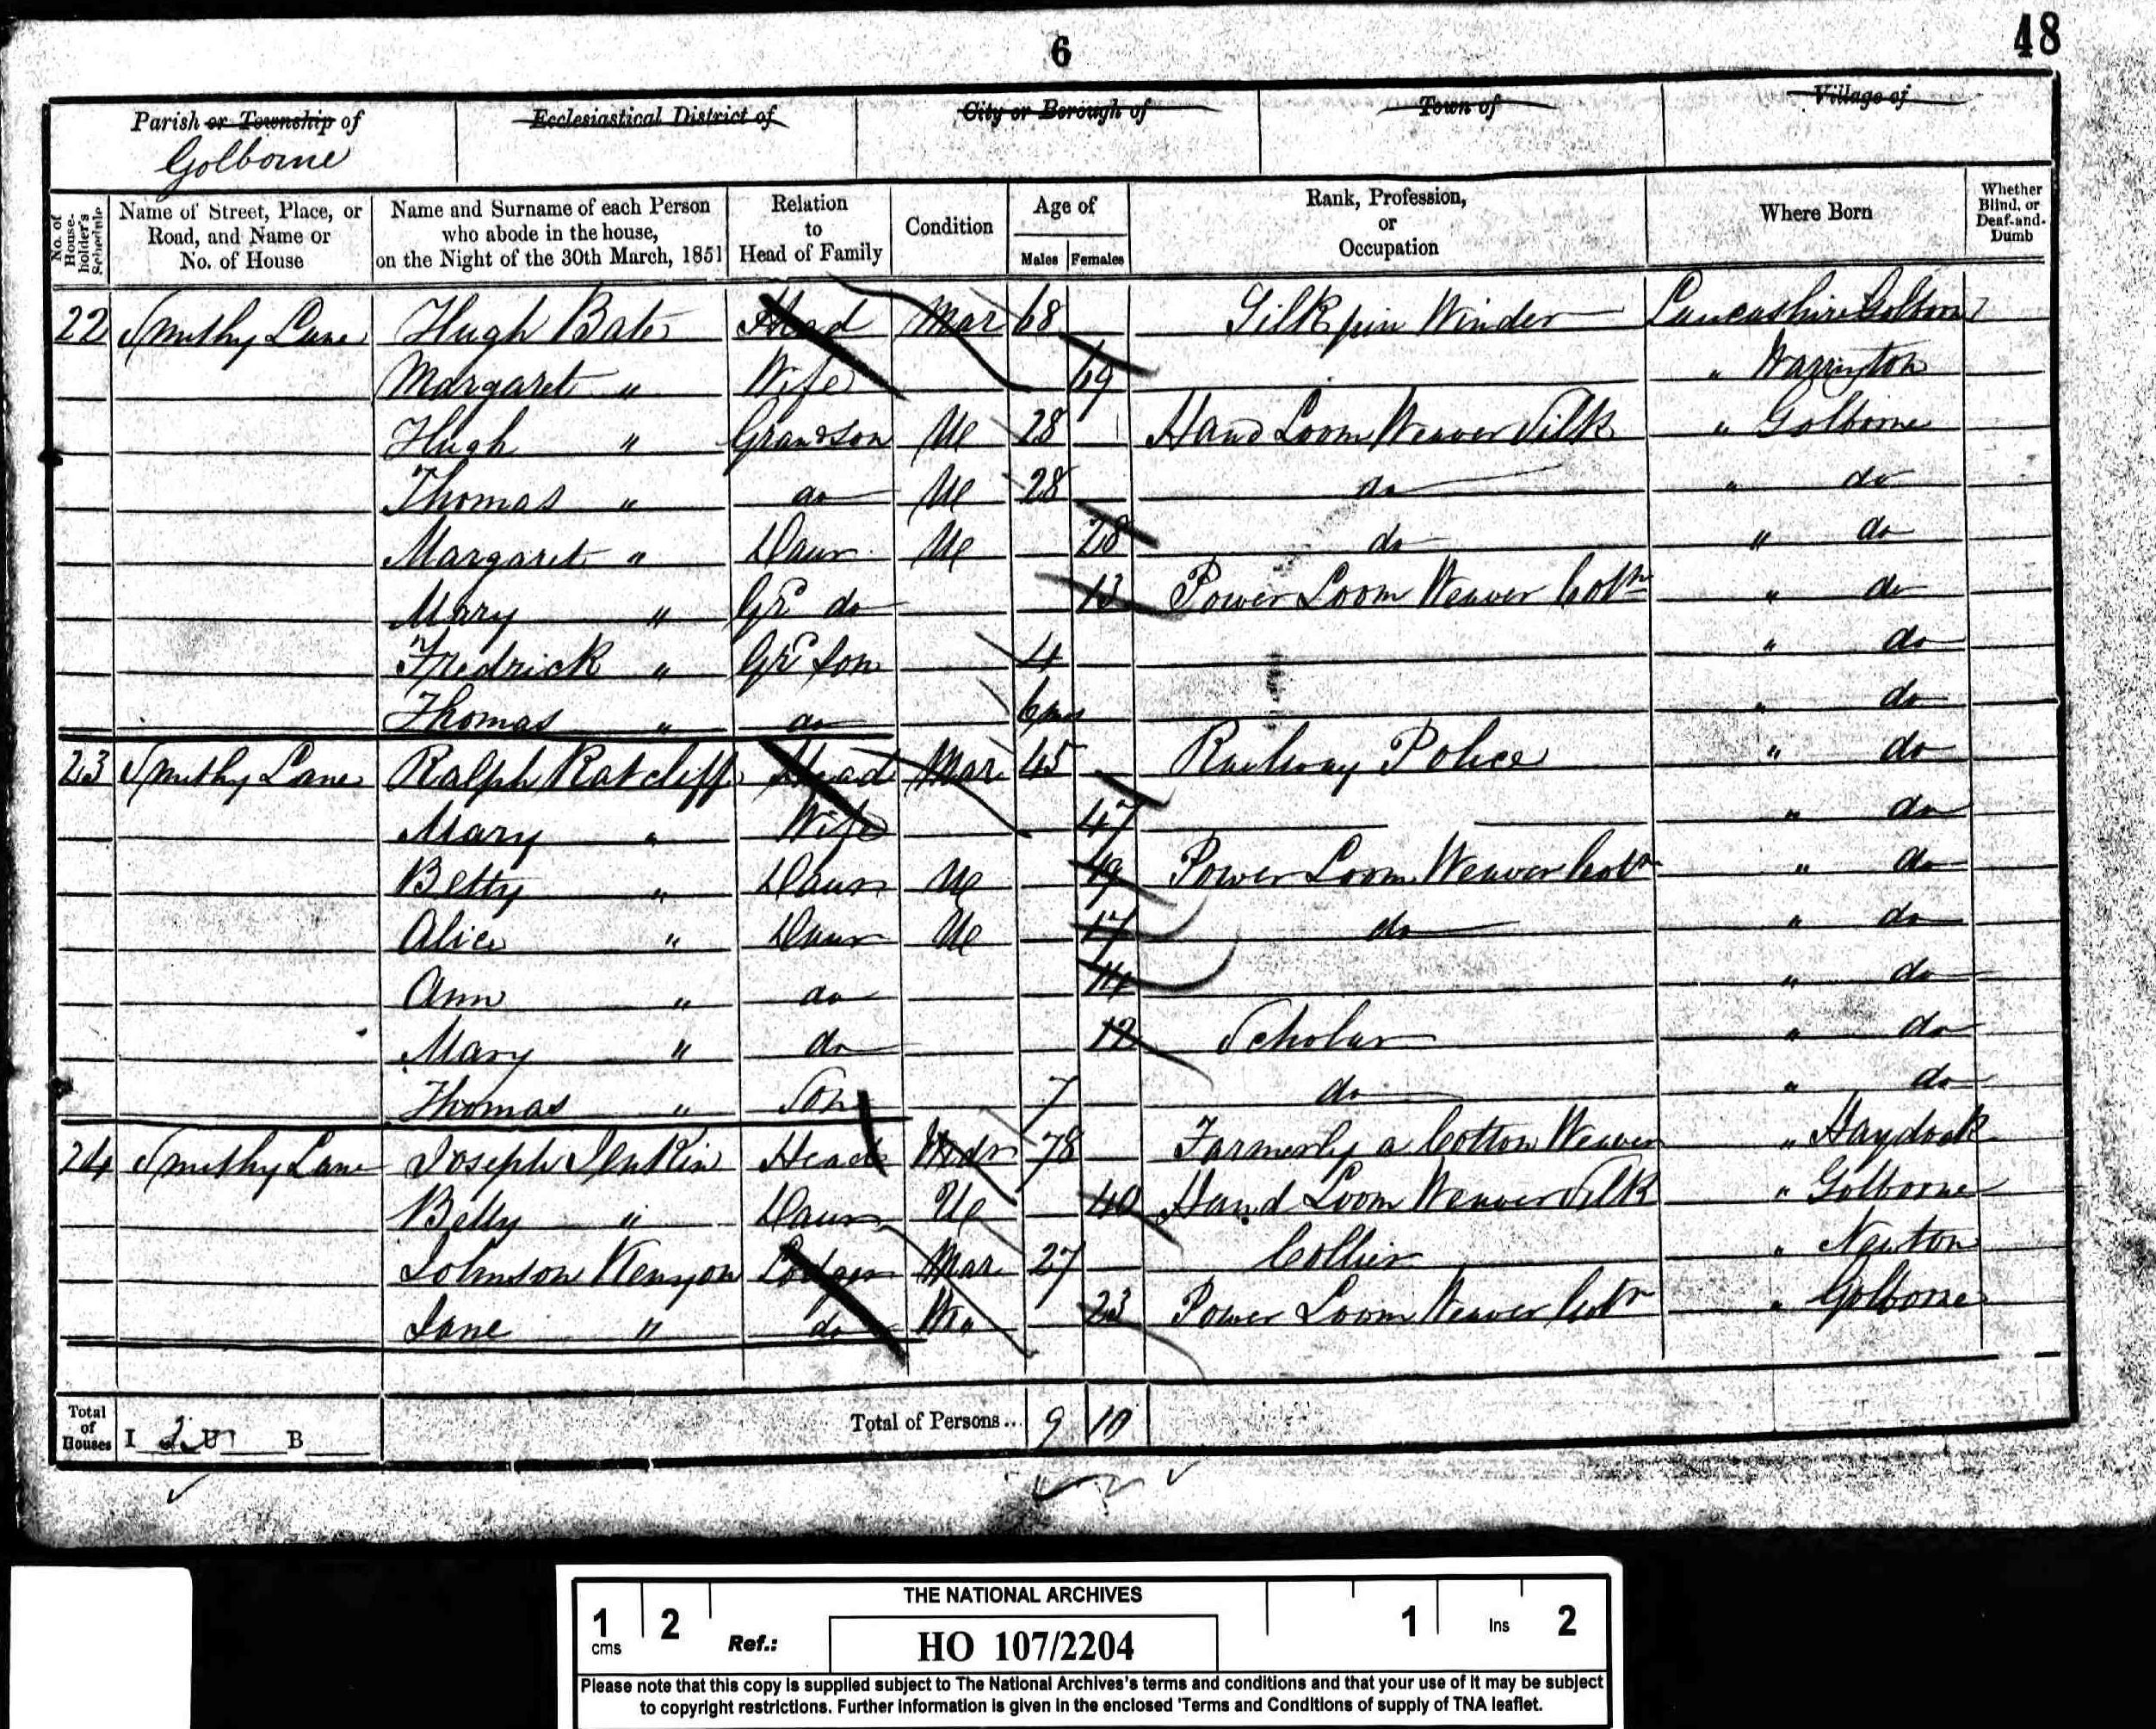 6
48
Parish or Township of
Golborne
Ecclesiastical District of
City or Borough of
Town of
Village of
No. of House-holder's Schedule
Name of Street, Place, or Road, and Name or No. of House
Name and Surname of each Person who abode in the house, on the Night of the 30th March, 1851
Relation to Head of Family
Condition
Age of
Males Females
Rank, Profession, or Occupation
Where Born
Whether Blind, or Deaf-and-Dumb
22 Smithy Lane Hugh Bate Head Mar 68 Silk pin Winder Lancashire Golborne
Margaret " Wife 69 " Warrington
Hugh " Grandson U 28 Hand Loom Weaver Silk " Golborne
Thomas " do U 28 do " do
Margaret " Daur U 28 do " do
Mary " Gd do 13 Power Loom Weaver Cottn " do
Fredrick " Gd Son 4 " do
Thomas " do 6 mos " do
23 Smithy Lane Ralph Ratcliff Head Mar 45 Railway Police " do
Mary " Wife 47 " do
Betty " Daur U 19 Power Loom Weaver Cottn " do
Alice " Daur U 17 do " do
Ann " do 14 " do
Mary " do 12 Scholar " do
Thomas " Son 7 do " do
24 Smithy Lane Joseph Jenkin Head Widr 78 Formerly a Cotton Weaver " Haydock
Betty " Daur U 40 Hand Loom Weaver Silk " Golborne
Johnson Kenyon Lodger Mar 27 Collier " Newton
Jane " do 23 Power Loom Weaver Cotn " Golborne
Total of Houses I U B
Total of Persons... 9 10
1 cms 2
THE NATIONAL ARCHIVES
Ref.: HO 107/2204
1 Ins 2
Please note that this copy is supplied subject to The National Archives's terms and conditions and that your use of it may be subject
to copyright restrictions. Further information is given in the enclosed 'Terms and Conditions of supply of TNA leaflet.